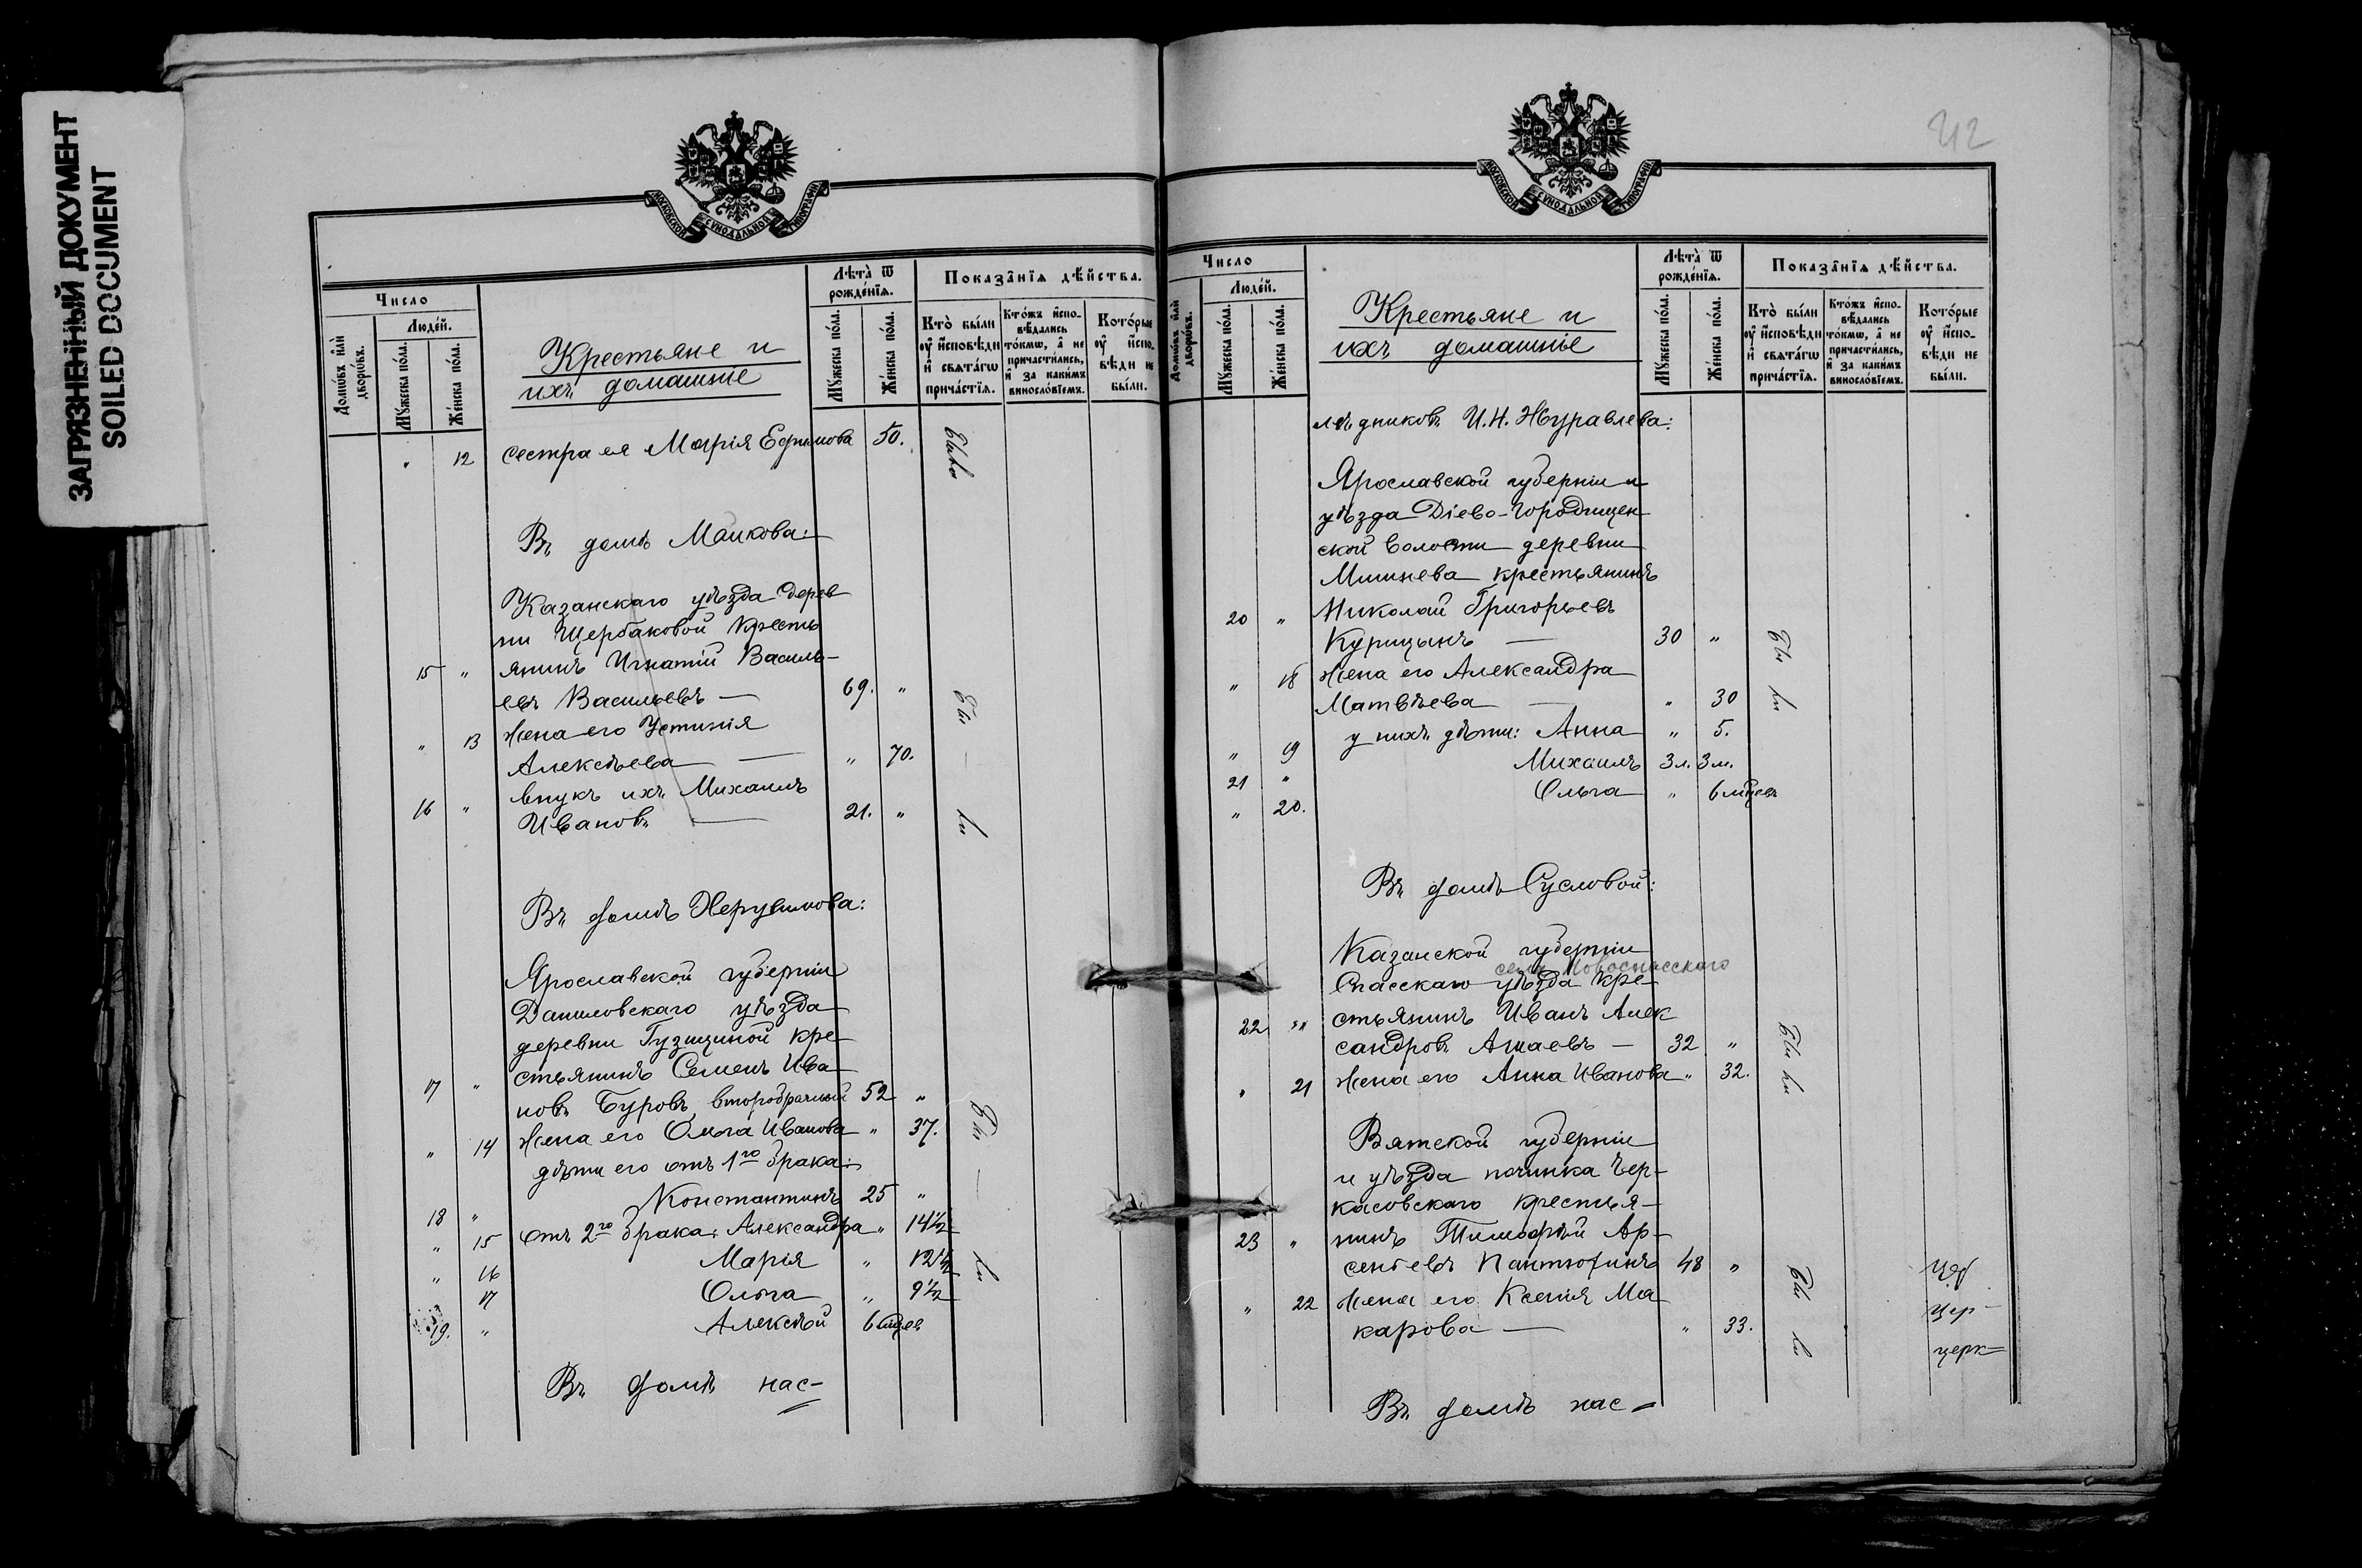 ЗАГРЯЗНЕННЫЙ ДОКУМЕНТ
SOILED DOCUMENT
МОСКОВСКОЙ СѴНОДАЛЬНОЙ ТИПОГРАФІИ
Число
Людéй.
Домѡ́въ и҆лѝ дворѡ́въ.
Мꙋ́жеска по́ла.
Же́нска по́ла.
Крестьяне и
ихъ домашніе
Лѣ́та ѿ рожде́нїѧ.
Мꙋ́жеска по́ла.
Же́нска по́ла.
Показа̑нїѧ дѣ́йства.
Кто̀ бы́ли оу҆ и҆сповѣ́ди и҆ свѧта́гѡ прича́стїѧ.
Кто́жъ и҆спо-вѣ́дались то́кмѡ, а҆ не причасти́лись, и҆ за каки́мъ винослѡ́вїемъ.
Кото́рые оу҆ и҆спо-вѣ́ди не бы́ли.
" 12 сестра ея Марія Ефимова 50. Была
Въ домѣ Маикова:
Казанскаго уѣзда дерев
ни Щербаковой кресть
15 " янинъ Игнатій Василь-
евъ Васильевъ — 69. " Бы —
" 13 жена его Устинія
Алексѣева — " 70.
16 " внукъ ихъ Михаилъ
Ивановъ — 21. " ли
Въ домѣ Херувимова:
Ярославской губерніи
Даниловскаго уѣзда
деревни Гузициной кре
17 " стьянинъ Семенъ Ива
новъ Буровъ, второбрачный 52 " Бы —
" 14 жена его Ольга Иванова " 37.
дѣти его отъ 1го брака:
18 " Константинъ 25 "
" 15 отъ 2го брака: Александра " 14½
" 16 Марія " 12½ ли
17 Ольга " 9½
19. " Алексѣй 6 мцев
Въ домѣ нас-
42
МОСКОВСКОЙ СѴНОДАЛЬНОЙ ТИПОГРАФІИ
Число
Людéй.
Домѡ́въ и҆лѝ дворѡ́въ.
Мꙋ́жеска по́ла.
Же́нска по́ла.
Крестьяне и
ихъ домашніе
Лѣ́та ѿ рожде́нїѧ.
Мꙋ́жеска по́ла.
Же́нска по́ла.
Показа̑нїѧ дѣ́йства.
Кто̀ бы́ли оу҆ и҆сповѣ́ди и҆ свѧта́гѡ прича́стїѧ.
Кто́жъ и҆спо-вѣ́дались то́кмѡ, а҆ не причасти́лись, и҆ за каки́мъ винослѡ́вїемъ.
Кото́рые оу҆ и҆спо-вѣ́ди не бы́ли.
лѣдниковъ И.Н. Журавлева:
Ярославской губерніи и
уѣзда Діево-Городищен
ской волости деревни
Мишнева крестьянинъ
20 " Николай Григорьевъ
Курицынъ — 30 " Бы
" 18 жена его Александра
Матвѣева — " 30 ли
" 19 у нихъ дѣти: Анна " 5.
21 " Михаилъ 3 л. 3 м.
" 20. Ольга " 6 мцевъ
Въ домѣ Сусловой:
Казанской губерніи
села Новоспасскаго
Спасскаго уѣзда кре-
22 " стьянинъ Иванъ Алек
сандровъ Ашаевъ — 32 " Бы
" 21 жена его Анна Иванова " 32. ли
Вятской губерніи
и уѣзда починка Чер-
касовскаго крестья-
23 " нинъ Тимофѣй Ар-
сентьевъ Пантюхинъ 48 " Бы
" 22 жена его Ксенія Ма Цер-
карова — " 33. ли церк-
Въ домѣ нас-